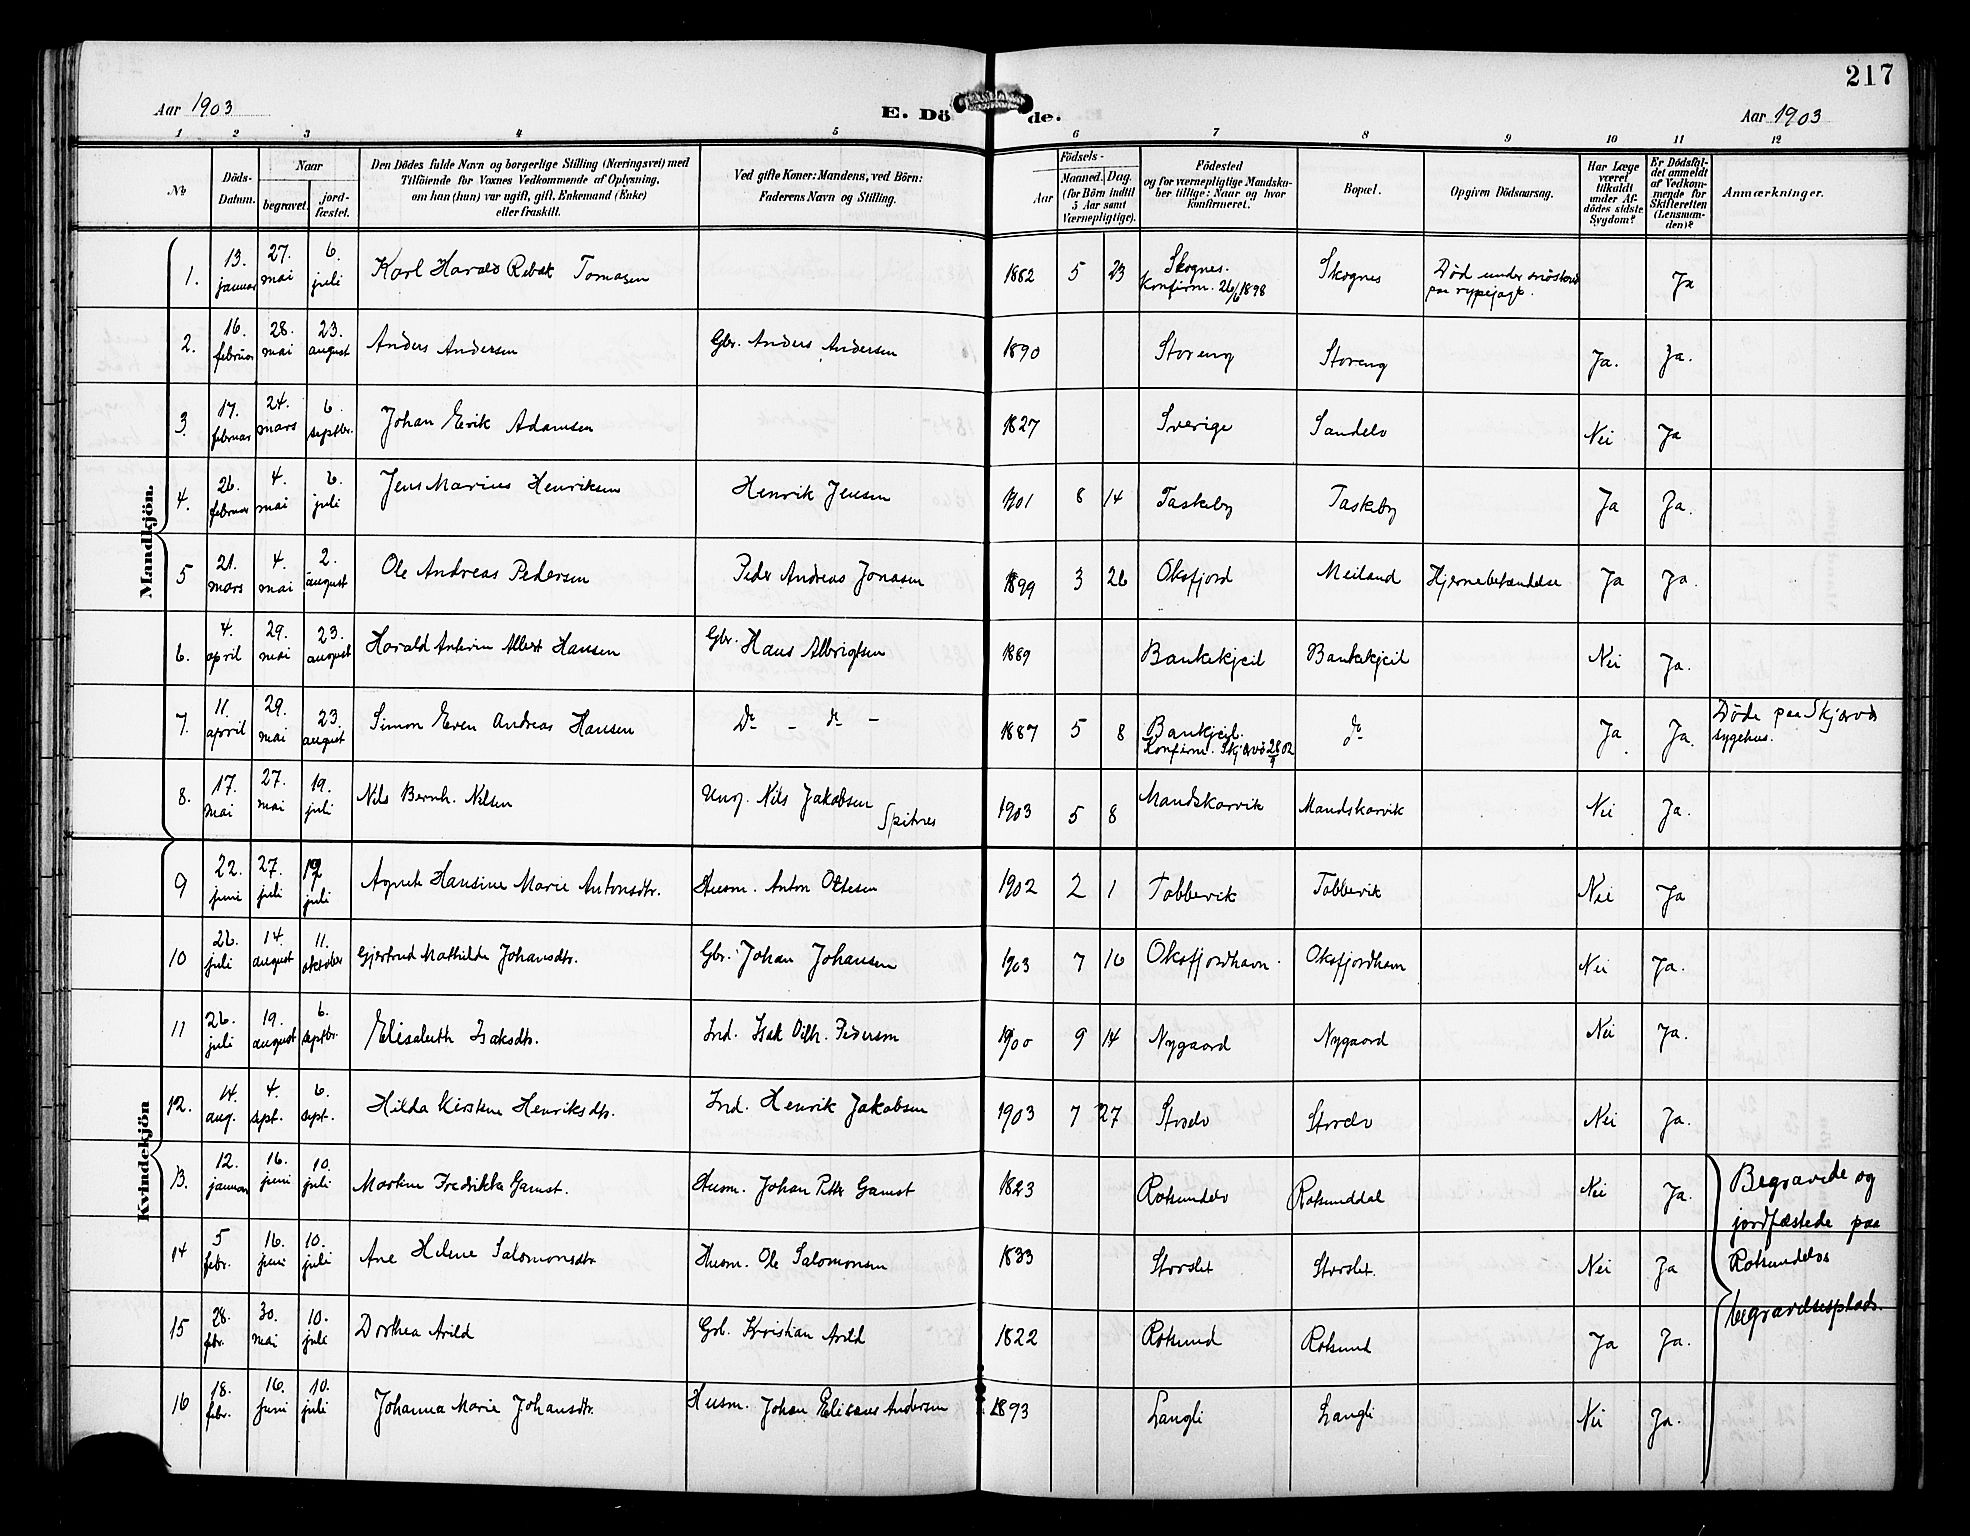 217
Aar 1903
E. Döde.
Aar 1903
1 2 3 4 5 6 7 8 9 10 11 12
No
Döds-Datum.
Naar
begravet.
jord-fæstet.
Den Dödes fulde Navn og borgerlige Stilling (Næringsvei) med
Tilföiende for Voxnes Vedkommende af Oplysning,
om han (hun) var ugift, gift, Enkemand (Enke)
eller fraskilt.
Ved gifte Koner: Mandens, ved Börn:
Faderens Navn og Stilling.
Födsels-
Aar
Maaned. Dag.
(for Börn indtil
5 Aar samt
Værnepligtige).
Födested
og for værnepligtige Mandska-
ber tillige: Naar og hvor
konfirmeret.
Bopæl.
Opgiven Dödsaarsag.
Har Læge
været
tilkaldt
under Af-
dödes sidste
Sygdom?
Er Dödsfal-
det anmeldt
af Vedkom-
mende for
Skifteretten
(Lensman-
den)?
Anmærkninger.
Mandkjön.
1. 13. januar 27. mai 6. juli Karl Harald Tomasen 1882 5 23 Skognes. Konfirm. 26/6 1898 Skognes Död under paa rypejagt. Ja
2. 16. februar 28. mai 23. august Anders Andersen Gbr. Anders Andersen 1890 Storeng Storeng Ja. Ja.
3. 17. februar 24. mars 6. septbr. Johan Erik Adamsen 1827 Sverige Sandelv Nei Ja
4. 26. februar 4. mai 6. juli Jens Marius Henriksen Henrik Jensen 1901 8 14 Taskeby Taskeby Ja Ja.
5 21. mars 4. mai 2. august Ole Andreas Pedersen Peder Andreas Jonasen 1899 3 26 Oksfjord Meiland Hjernebetændelse Ja Ja.
6. 4. april 29. mai 23. august Harald Albert Hansen Gbr. Hans Albrigtsen 1889 Bankekjeil Bankekjeil Nei Ja.
7. 11. april 29. mai 23. august Simon Even Andreas Hansen Do - do - 1887 5 8 Bankjeil. Konfirm. Skjervö 28/9 02 do Ja Ja. Döde paa Skjervö sygehus.
8. 17. mai 27. mai 19. juli Nils Bernh. Nilsen Ung. Nils Jakobsen Spitnes 1903 5 8 Mandskarvik Mandskarvik Nei Ja.
Kvindekjön
9 22. juni 27. juli 19 juli Agnete Hansine Marie Antonsdtr. Husm. Anton Ottesen 1902 2 1 Tobbevik Tobbevik Nei Ja
10 26. juli 14. august 11. oktober Gjertrud Mathilde Johansdtr. Gbr. Johan Johansen 1903 7 16 Oksfjordhavn. Oksfjordhavn Nei Ja.
11 26. juli 19. august 6. septbr. Elisabeth Isaksdtr. Ind. Isak Vilh. Pedersen 1900 9 14 Nygaard Nygaard Nei Ja.
12. 14. aug. 4. sept. 6. sept. Hilda Kirstine Henriksdtr. Ind. Henrik Jakobsen 1903 7 27 Storelv Storelv Nei Ja.
13. 12. januar 16. juni 10. juli Martine Fredrikke Gamst. Husm. Johan Petter Gamst 1823 Rotsundelv Rotsunddal Nei Ja. Begravede og
14 5 febr. 16. juni 10. juli Ane Helene Salomonsdtr. Husm. Ole Salomonsen 1833 Storslet Storslet. Nei Ja jordfæstede paa Rotsundelvs
15 28. febr. 30. mai 10. juli Dorthea Arild Gbr. Kristian Arild 1822 Rotsund Rotsund Ja Ja. begravelsesplads.
16 18. febr. 16. juni 10. juli Johanna Marie Johansdtr. Husm. Johan Eliseus Andersen 1893 Langli Langli Nei Ja.